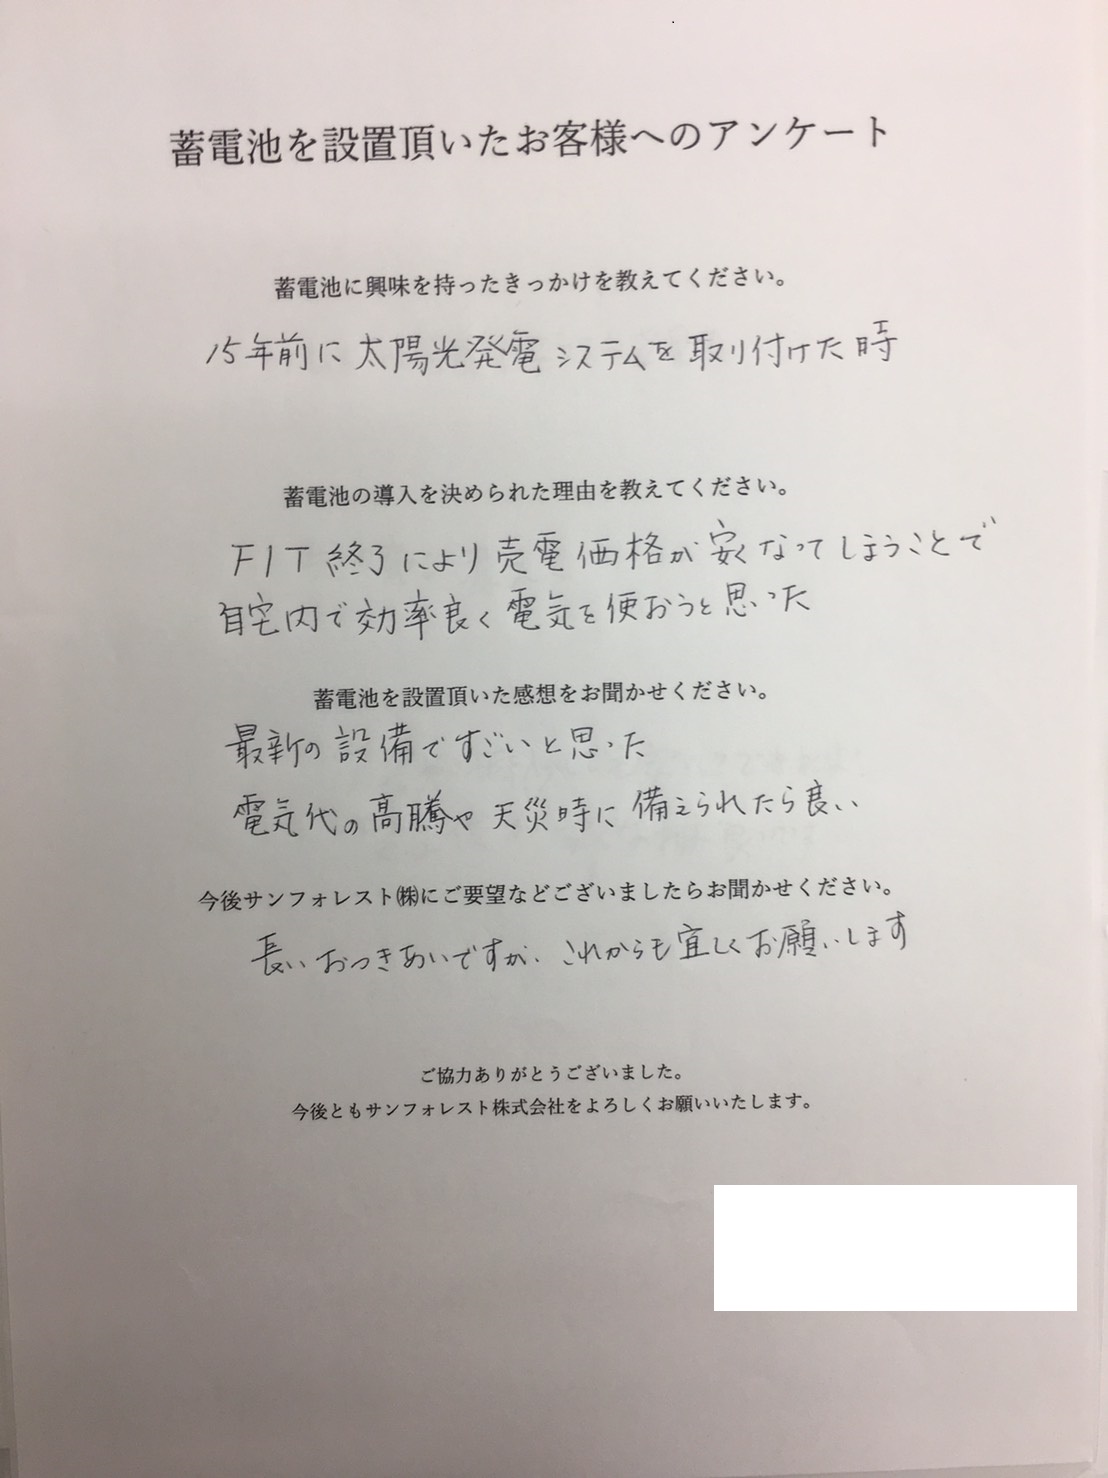 蓄電池を設置頂いたお客様へのアンケート
蓄電池に興味を持ったきっかけを教えてください。
15年前に太陽光発電システムを取り付けた時
蓄電池の導入を決められた理由を教えてください。
FIT終了により売電価格が安くなってしまうことで
自宅内で効率良く電気を使おうと思った
蓄電池を設置頂いた感想をお聞かせください。
最新の設備ですごいと思った
電気代の高騰や天災時に備えられたら良い
今後サンフォレスト㈱にご要望などございましたらお聞かせください。
長いおつきあいですが、これからも宜しくお願いします
ご協力ありがとうございました。
今後ともサンフォレスト株式会社をよろしくお願いいたします。